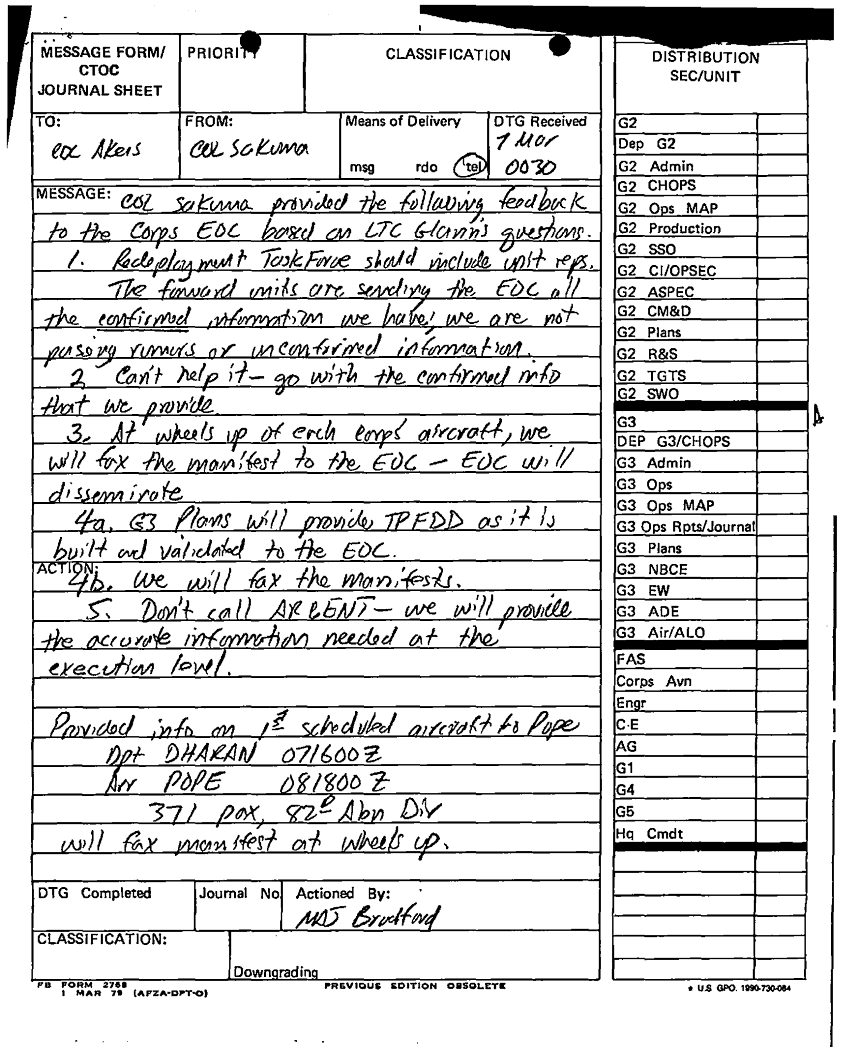 MESSAGE FORM/
CTOC
JOURNAL SHEET
PRIORITY
CLASSIFICATION
TO:
COL Akers
FROM:
COL Sakuma
Means of Delivery
msg rdo tel
DTG Received
7 Mar
0030
MESSAGE: COL Sakuma provided the following feedback
to the Corps EOC based on LTC Glann's questions.
1. Redeployment Task Force should include unit reps.
The forward units are sending the EOC all
the confirmed information we have; we are not
passing rumors or unconfirmed information.
2 Can't help it - go with the confirmed info
that we provide
3. At wheels up of each corps aircraft, we
will fax the manifest to the EOC - EOC will
disseminate
4a. G3 Plans will provide TPFDD as it is
built and validated to the EOC.
ACTION:
4b. We will fax the manifests.
5. Don't call ARCENT - we will provide
the accurate information needed at the
execution level.
Provided info on 1st scheduled aircraft to Pope
Dpt DHARAN 071600Z
Arr POPE 081800Z
371 pax, 82d Abn Div
will fax manifest at wheels up.
DTG Completed
Journal No.
Actioned By:
MAJ Bradford
CLASSIFICATION:
Downgrading
FB FORM 2768
1 MAR 79 (AFZA-DPT-O)
PREVIOUS EDITION OBSOLETE
DISTRIBUTION
SEC/UNIT
G2
Dep G2
G2 Admin
G2 CHOPS
G2 Ops MAP
G2 Production
G2 SSO
G2 CI/OPSEC
G2 ASPEC
G2 CM&D
G2 Plans
G2 R&S
G2 TGTS
G2 SWO
G3
DEP G3/CHOPS
G3 Admin
G3 Ops
G3 Ops MAP
G3 Ops Rpts/Journal
G3 Plans
G3 NBCE
G3 EW
G3 ADE
G3 Air/ALO
FAS
Corps Avn
Engr
C-E
AG
G1
G4
G5
Hq Cmdt
* U.S GPO: 1990-730-084